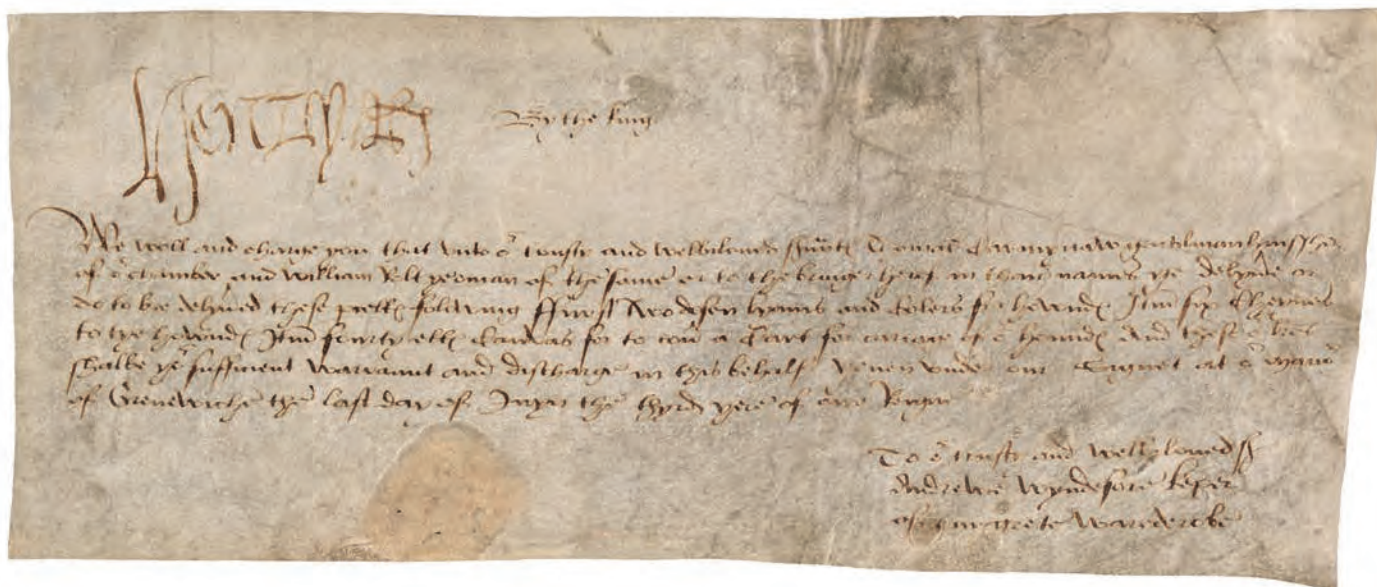 Henry R
By the king
We woll and charge you that vnto oʳ trusty and welbiloued sʳuᵃnt Thomas Carmynow gentilman hussher
of oʳ chambre and william Rolt yeoman of the same or to the bringer herof in thair names ye delyuer or
do to be delyured these pcell folowing ffurst two dosen lyams and colers for howndꝭ Itm six Cheynes
to the howndꝭ Itm fourty ellꝭ Canvas for to couʳ a Cart for cariage of oʳ howndꝭ And these oʳ lres
shalbe yoʳ sufficient warraunt and discharge in this behalf yeuen vnder our Signet at oʳ manoʳ
of Grenewiche the last day of the thyrd yere of oure Reign
To oʳ trusty and welbiloued sʳ
Andrewe wyndesore keper
of our grete warderobe